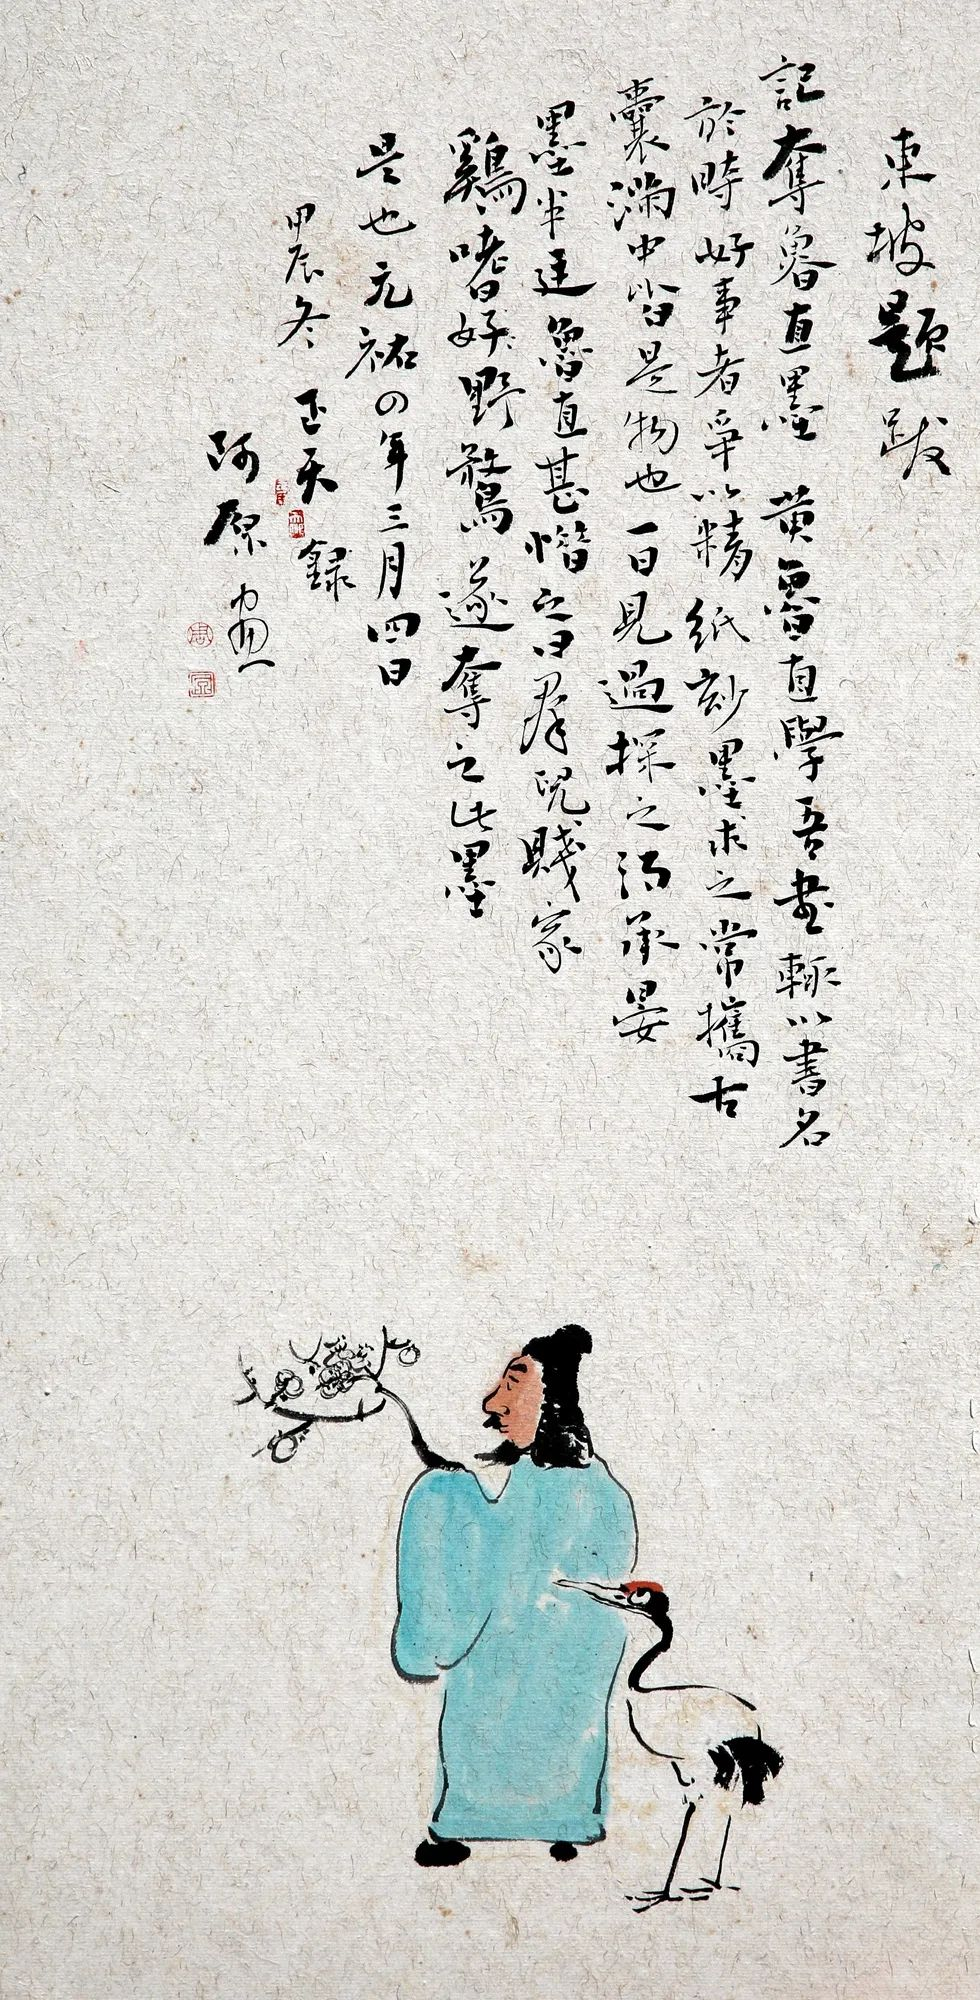 東坡題跋
記奪魯直墨 黄魯直學吾書輒以書名
於時好事者爭以精紙妙墨求之常攜古
囊滿中皆是物也一日見過探之得承晏
墨半廷魯直甚惜之曰羣兒賤家
鷄嗜好野鶩遂奪之此墨
是也元祐四年三月四日
甲辰冬 正天錄
阿原畫